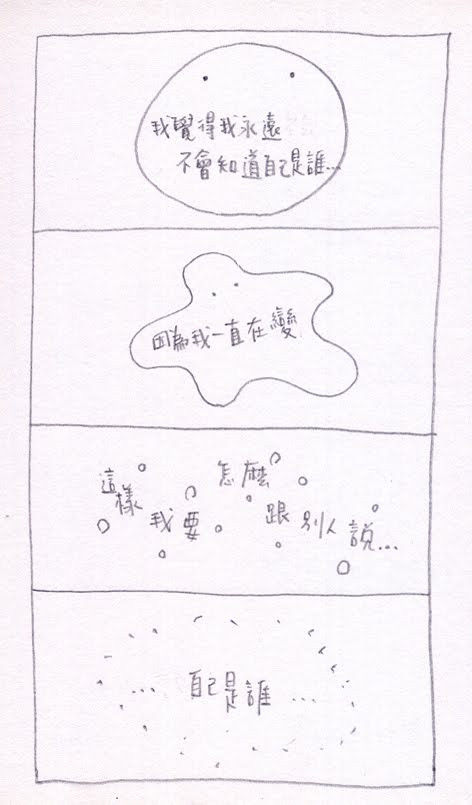 我覺得我永遠
不會知道自己是誰...
因為我一直在變
這樣
我要
怎麼
跟
別人
說...
... 自己是誰 ...